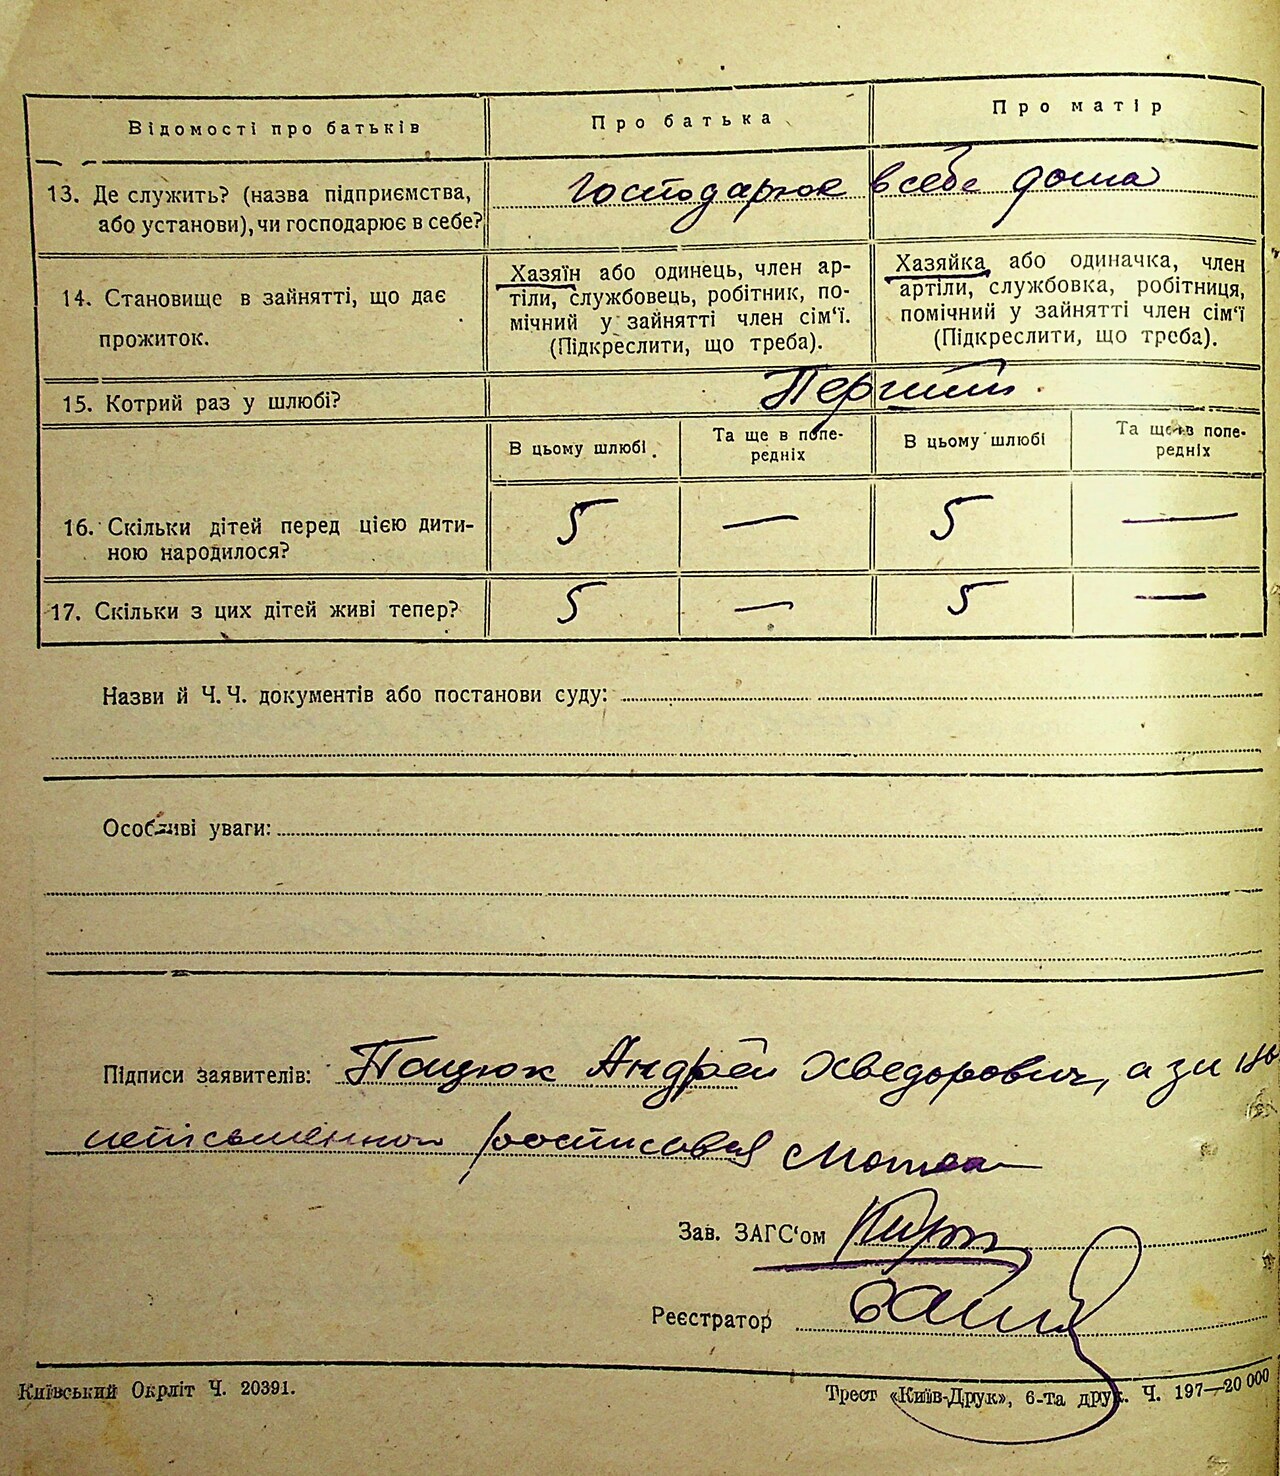 Відомості про батьків
Про батька
Про матір
13. Де служить? (назва підприємства,
або установи), чи господарює в себе?
Господарює в себе дома
14. Становище в зайнятті, що дає
прожиток.
Хазяїн або одинець, член ар-
тіли, службовець, робітник, по-
мічний у зайнятті член сім'ї.
(Підкреслити, що треба).
Хазяйка або одиначка, член
артіли, службовка, робітниця,
помічний у зайнятті член сім'ї
(Підкреслити, що треба).
15. Котрий раз у шлюбі?
В цьому шлюбі
Та ще в попе-
редніх
В цьому шлюбі
Та ще в попе-
редніх
16. Скільки дітей перед цією дити-
ною народилося?
5 — 5 —
17. Скільки з цих дітей живі тепер?
5 — 5 —
Назви й Ч.Ч. документів або постанови суду:
Особливі уваги:
Підписи заявителів: Пацюк Андрей Хведорович, а за
росписався
Зав. ЗАГС'ом
Реєстратор
Київський Окрліт Ч. 20391.
Трест «Київ-Друк», 6-та друк. Ч. 197—20 000